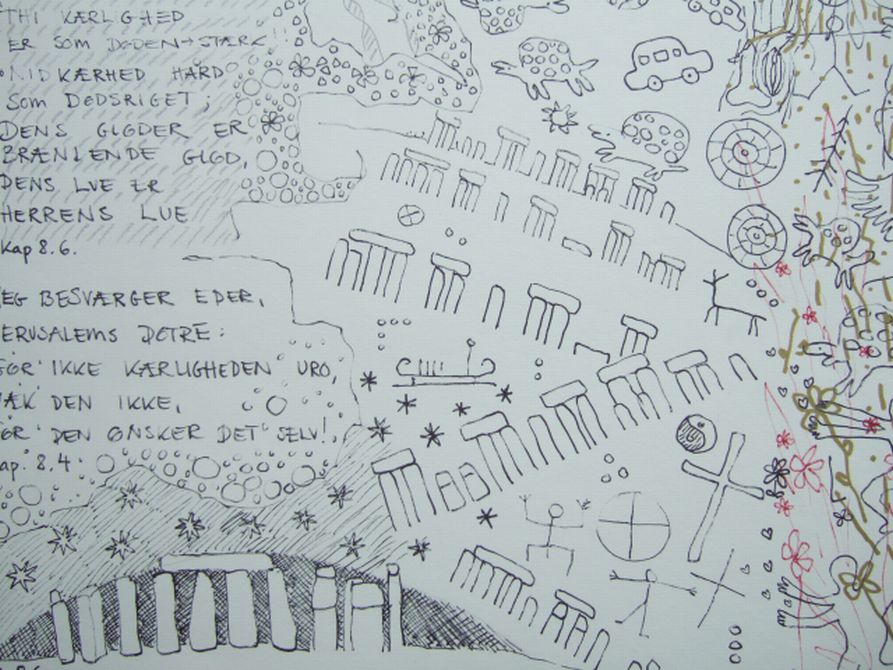 THI KÆRLIGHED
ER SOM DØDEN STÆRK!
NIDKÆRHED HÅRD
SOM DØDSRIGET;
DENS GLØDER ER
BRÆNDENDE GLØD,
DENS LUE ER
HERRENS LUE
Kap 8.6.
EG BESVÆRGER EDER,
ERUSALEMS DØTRE:
FOR IKKE KÆRLIGHEDEN URO,
ÆK DEN IKKE,
FØR DEN ØNSKER DET SELV!
ap. 8.4.